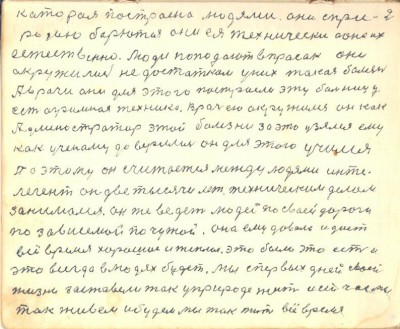 которая построена людями. они с при- 2
родою борются они ея технически одних
естественно. Люди попадают впросак они
окружилися недостатком у них такая болезнь
А врачи они для этого построили эту больницу
ест огромная техника. Врачею окружился он как
Администратор этой болезни за это узялся ему
как ученому доверился он для этого учился
Поэтому он считается между людями инте-
легент он две тысячи лет техническим делом
занимался. он же ведет людей по своей дороги
по зависемой по чужой. она ему довала и дает
всё время хорошое и теплое. это было это есть и
это всегда в людях будет. мы с первых дней своей
жизни заставели так у природе жить и сей час мы
так живем и будем мы так жить всё время